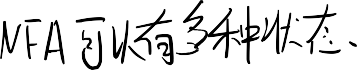 NFA可以有多种状态、